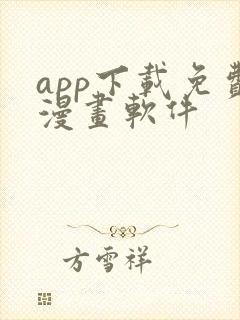 app下載免費
漫畫軟件
方雪祥